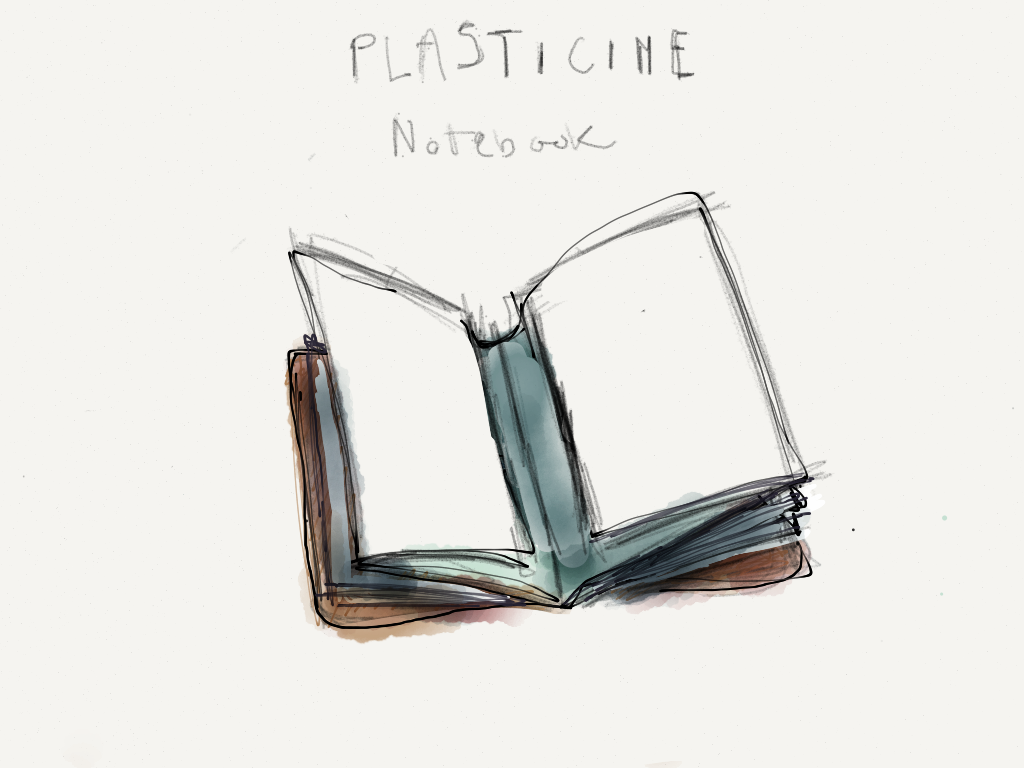 PLASTICINE
Notebook